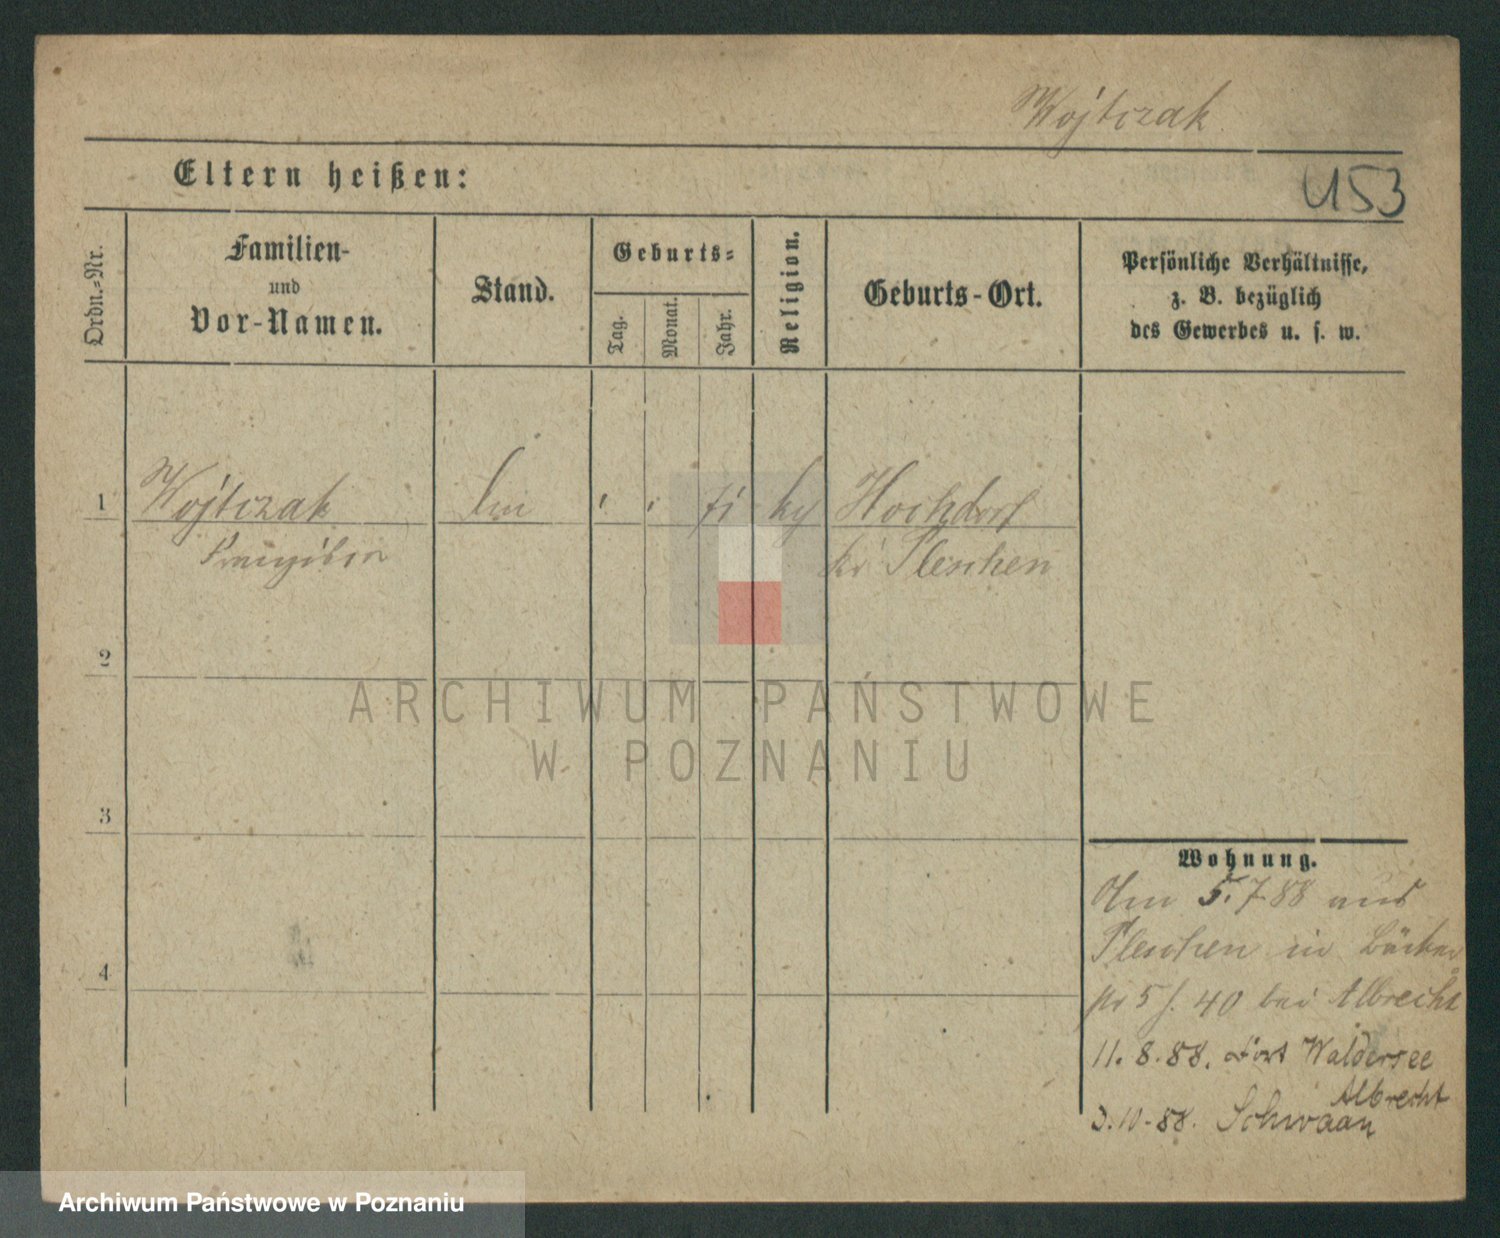 Wojtczak
Eltern heißen:
U53
Ordn.-Nr.
Familien-
und
Vor-Namen.
Stand.
Geburts-
Tag.
Monat.
Jahr.
Religion.
Geburts-Ort.
Persönliche Verhältnisse,
z. B. bezüglich
des Gewerbes u. s. w.
1
Wojtczak
Hochdorf
Pleschen
2
ARCHIWUM PAŃSTWOWE
W POZNANIU
3
Wohnung.
5.7.88 aus
Pleschen in
40 bei Albrecht
4
11.8.88. Fort Waldersee
Albrecht
3.10.88. Schwaan
Archiwum Państwowe w Poznaniu